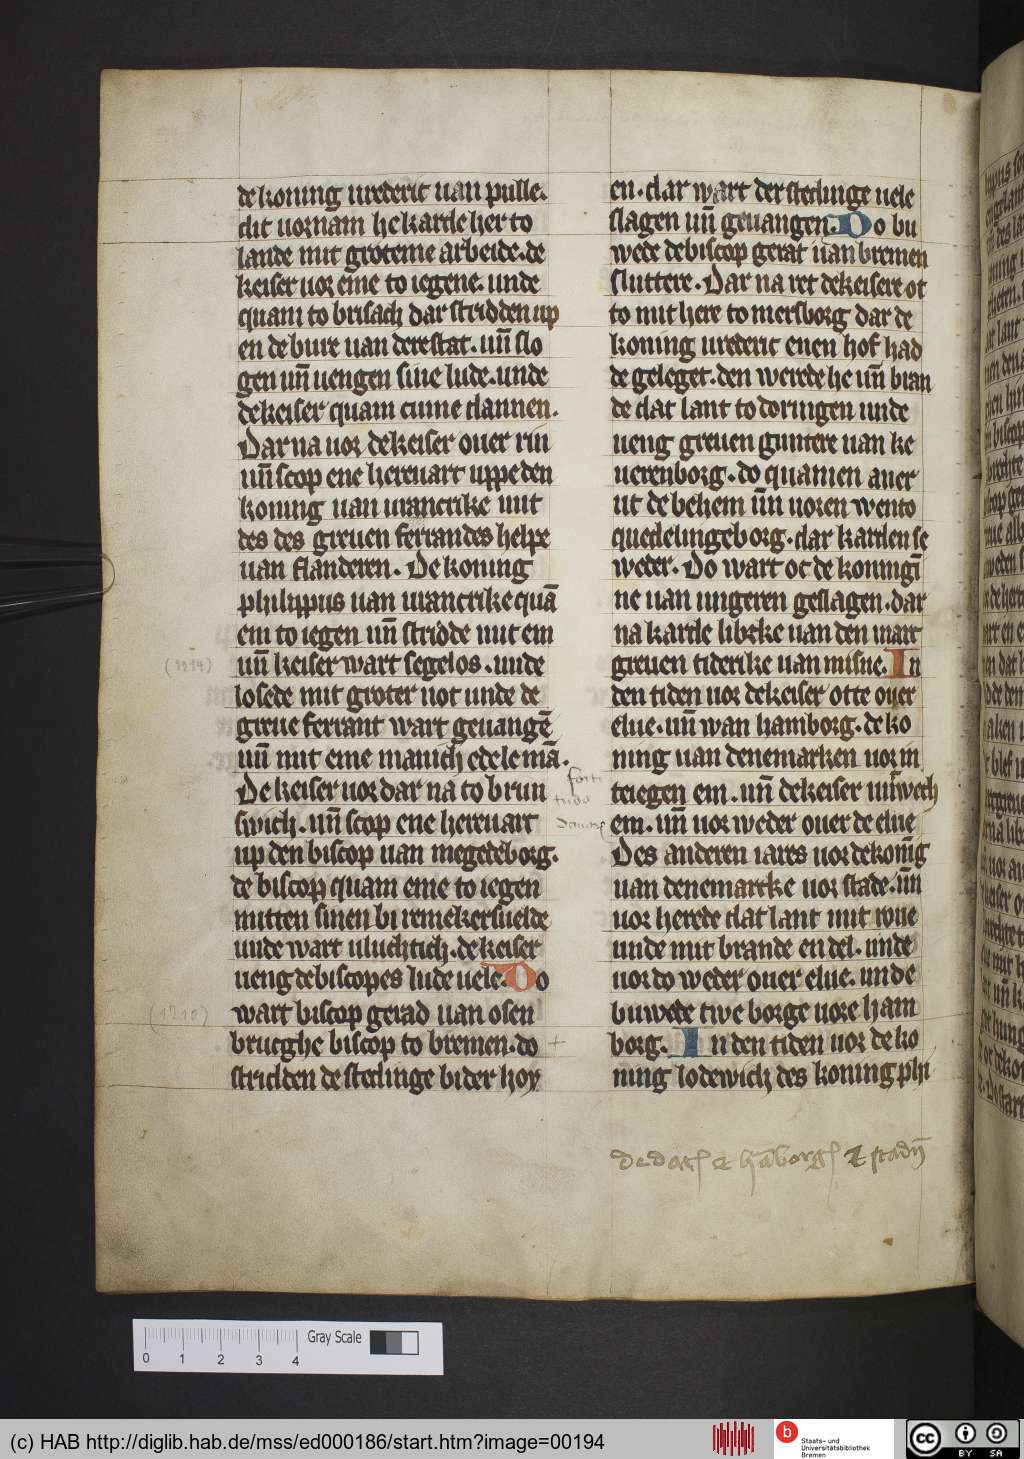 de koning vrederic van pulle.
dit vornam he karde her to
lande mit groteme arbeide. de
keiser vor eme to iegene. unde
quam to brisach dar stridden up
en de bure van dere stat. uñ slo
gen uñ vengen sine lude. unde
de keiser quam cume dannen.
Dar na vor de keiser over rin
uñ scop ene herevart uppe den
koning van vrancrike mit
des des greven ferrandes helpe
van flanderen. De koning
philippus van vrancrike quā
em to iegen uñ stridde mit em
(1214) uñ keiser wart segelos. unde
losede mit groter not unde de
greve ferrant wart gevangē
uñ mit eme manich edele mā.
De keiser vor dar na to brun
swich. uñ scop ene herevart
up den biscop van megedeborg.
de biscop quam eme to iegen
mitten sinen bi remekersvelde
unde wart vluchtich. de keiser
veng de biscopes lude vele. Do
(1210) wart biscop gerad van osen
brucghe biscop to bremen. do
stridden de stedinge bider hoy
en. dar wart der stedinge vele
slagen uñ gevangen. Do bu
wede de biscop gerat van bremen
sluttere. Dar na ret de keisere ot
to mit here to mersborg dar de
koning vrederic enen hof had
de geleget. den werede he uñ bran
de dat lant to doringen unde
veng greven guntere van ke
verenborg. do quamen aver
ut de behem uñ voren wento
quedelingeborg. dar karden se
weder. Do wart oc de koningī
ne van ungeren geslagen. dar
na karde libzke van den mart
greven tiderike van misne. In
den tiden vor de keiser otte over
elve. uñ wan hamborg. de ko
ning van denemarken vor in
teiegen em. uñ de keiser untwech
em. uñ vor weder over de elve
Des anderen iares vor de konīg
van denemarcke vor stade. uñ
vor herede dat lant mit rove
unde mit brande en del. unde
vor do weder over elve. unde
buwede twe borge vore ham
borg. In den tiden vor de ko
ning lodewich des koning phi
Gray Scale
0 1 2 3 4
(c) HAB http://diglib.hab.de/mss/ed000186/start.htm?image=00194
b
Staats- und
Universitätsbibliothek
Bremen
cc
BY SA